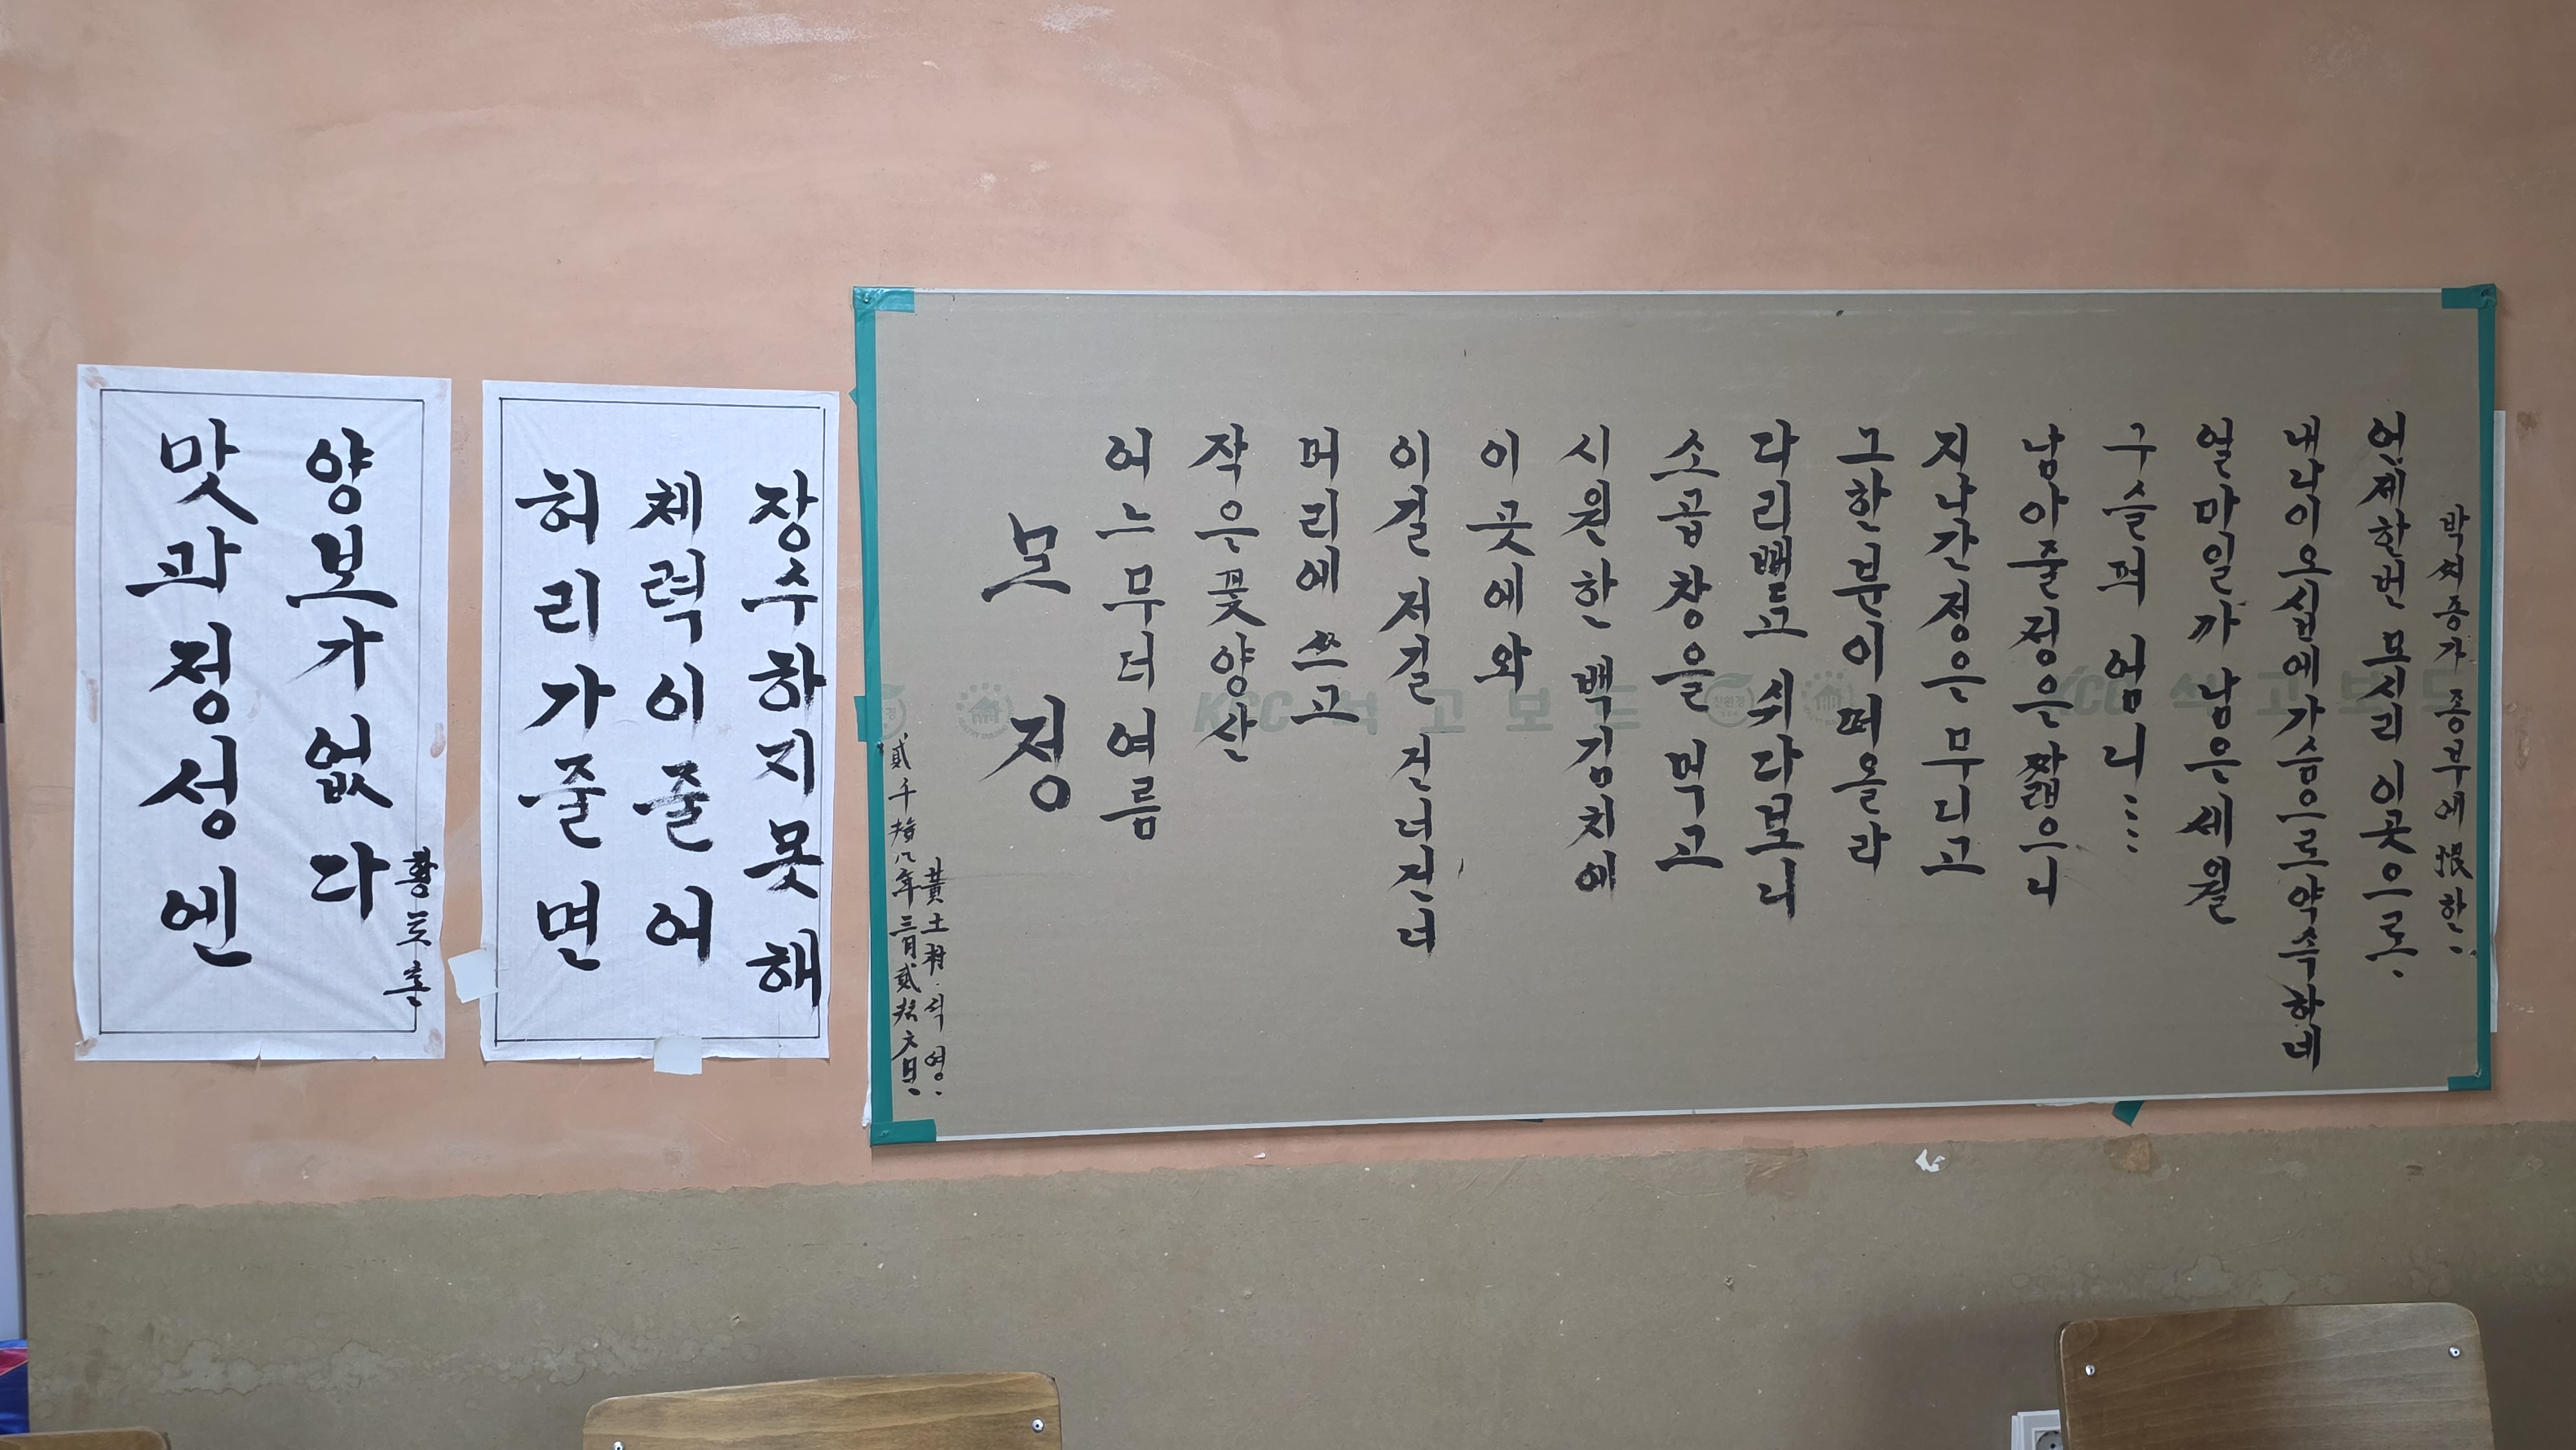 맛과정성엔
양보가없다
황토촌
허리가줄면
체력이줄어
장수하지못해
貳千拾八年三月貳拾六日..
黃土村.석영..
모정
어느무더여름
작은꽃양산
머리에 쓰고
이길 저길 건너건너
이곳에와
시원한 백김치에
소곱창을 먹고
다리뻗고 쉬다보니
그한분이떠올라
지나간정은무디고
남아줄정은짧으니
구슬퍼 엄니....
얼마일까 남은세월
내나이오십에가슴으로약속하네
언제한번 모시리 이곳으로..
박씨종가 종부에恨한..
KCC 석고보드
KCC 석고보드